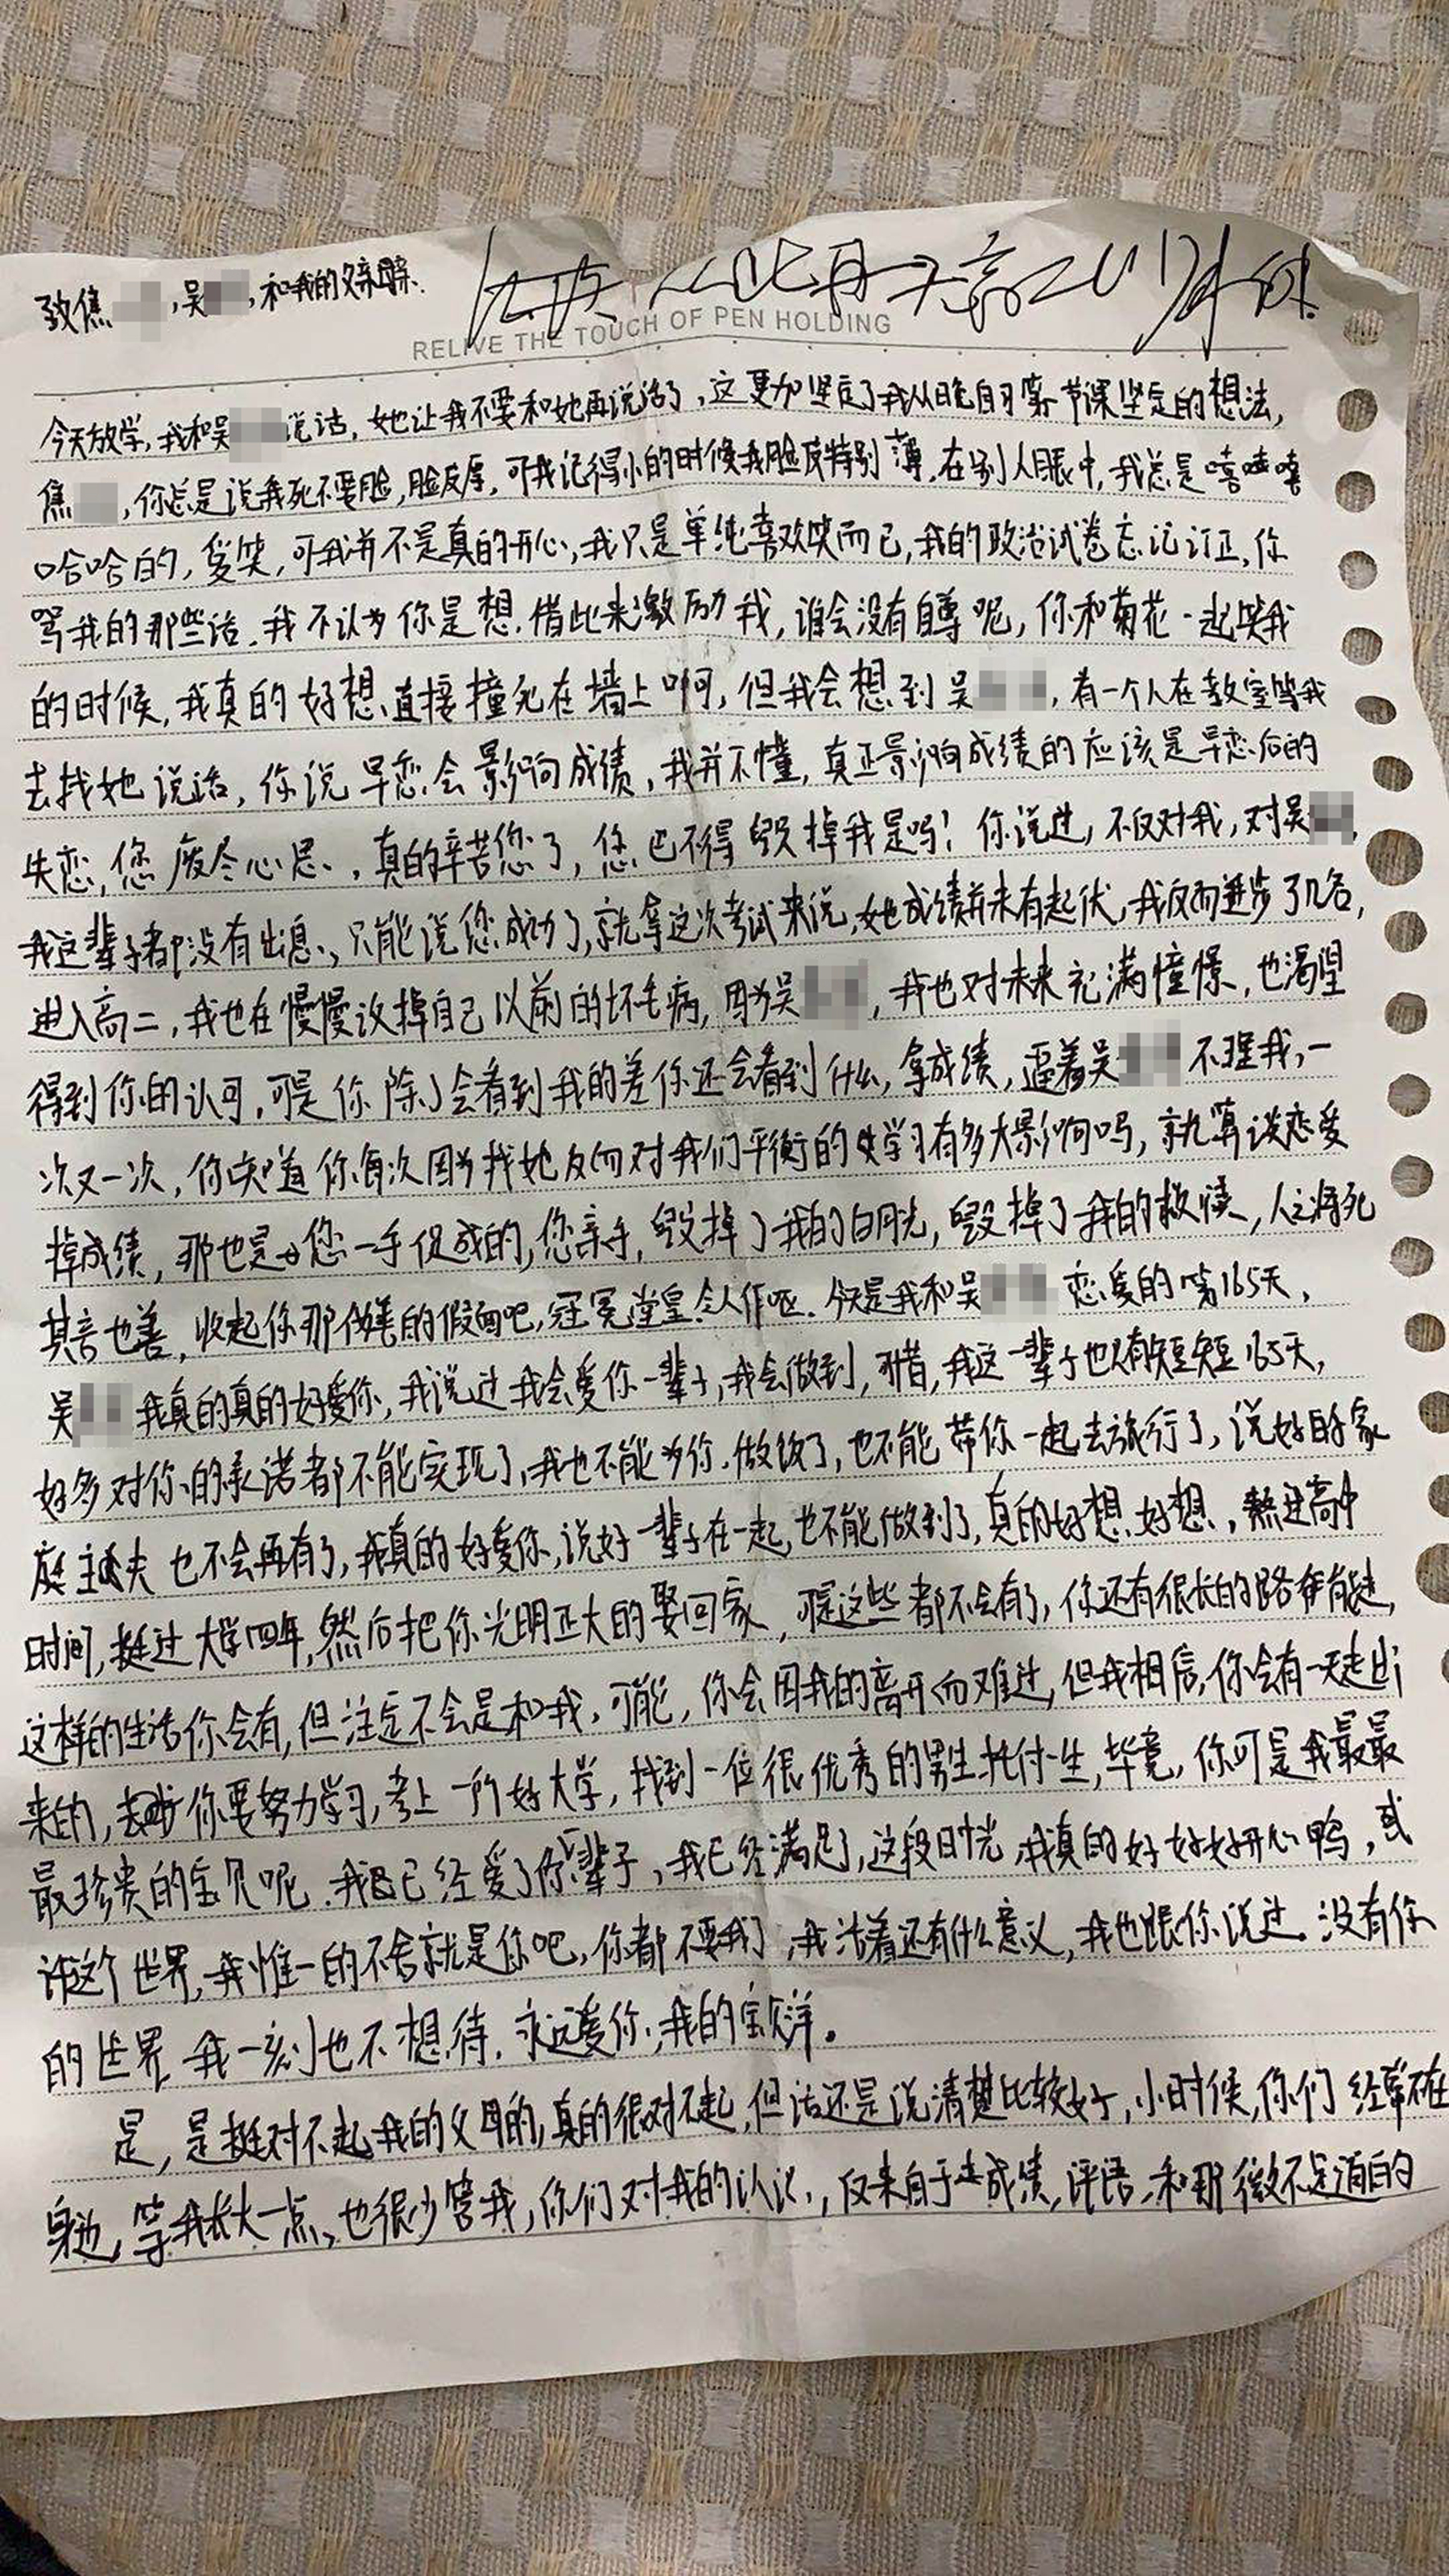 致焦 ,吴 ,和我的父亲母亲.
RELIVE THE TOUCH OF PEN HOLDING
今天放学,我和吴 说话,她让我不要和她再说话了,这更加坚定了我从晚自习第一节课坚定的想法,
焦 ,你总是说我死不要脸,脸皮厚,可我记得小的时候我脸皮特别薄,在别人眼中,我总是嘻嘻嘻
哈哈哈的,爱笑,可我并不是真的开心,我只是单纯喜欢笑而已,我的政治试卷忘记订正,你
骂我的那些话.我不认为你是想借此来激励我,谁会没有自尊呢,你和菊花一起笑我
的时候,我真的好想直接撞死在墙上啊,但我会想到吴 ,有一个人在教室等我
去找她说话,你说早恋会影响成绩,我并不懂,真正影响成绩的应该是早恋后的
失恋,您废尽心思,真的辛苦您了,您巴不得毁掉我是吗!你说过,不仅对我,对吴 ,
我这辈子都没有出息,只能说您成功了,就拿这次考试来说,她成绩并未有起伏,我反而进步了几名,
进入高二,我也在慢慢改掉自己以前的坏毛病,因为吴 ,我也对未来充满憧憬,也渴望
得到你的认可,可是你除了会看到我的差你还会看到什么,拿成绩,逼着吴 不理我,一
次又一次,你知道你每次因为找她反而对我们平衡的学习有多大影响吗,就算谈恋爱
掉成绩,那也是您一手促成的,您亲手,毁掉了我的白月光,毁掉了我的救赎,人之将死
其言也善,收起你那伪善的假面吧,冠冕堂皇令人作呕.今天是我和吴 恋爱的第165天,
吴 我真的真的好爱你,我说过我会爱你一辈子,我会做到,可惜,我这一辈子也只有短短165天,
好多对你的承诺都不能实现了,我也不能为你做饭了,也不能带你一起去旅行了,说好的家
庭主夫也不会再有了,我真的好爱你,说好一辈子在一起,也不能做到了,真的好想好想,熬过高中
时间,挺过大学四年,然后把你光明正大的娶回家,可是这些都不会有了,你还有很长的路有能走,
这样的生活你会有,但注定不会是和我,可能,你会因我的离开而难过,但我相信,你会有一天走出
来的,你要努力学习,考上一所好大学,找到一位很优秀的男生托付一生,毕竟,你可是我最最
最珍贵的宝贝呢.我已经爱了你一辈子,我已经满足了,这段时光,我真的好好好开心鸭,或
许这个世界,我惟一的不舍就是你吧,你都不要我了,我活着还有什么意义,我也跟你说过.没有你
的世界我一刻也不想待.永远爱你,我的宝贝洋。
是,是挺对不起我的父母的,真的很对不起,但话还是说清楚比较好,小时候,你们经常不在
身边,等我长大一点,也很少管我,你们对我的认识,仅来自于成绩,评语,和那微不足道的